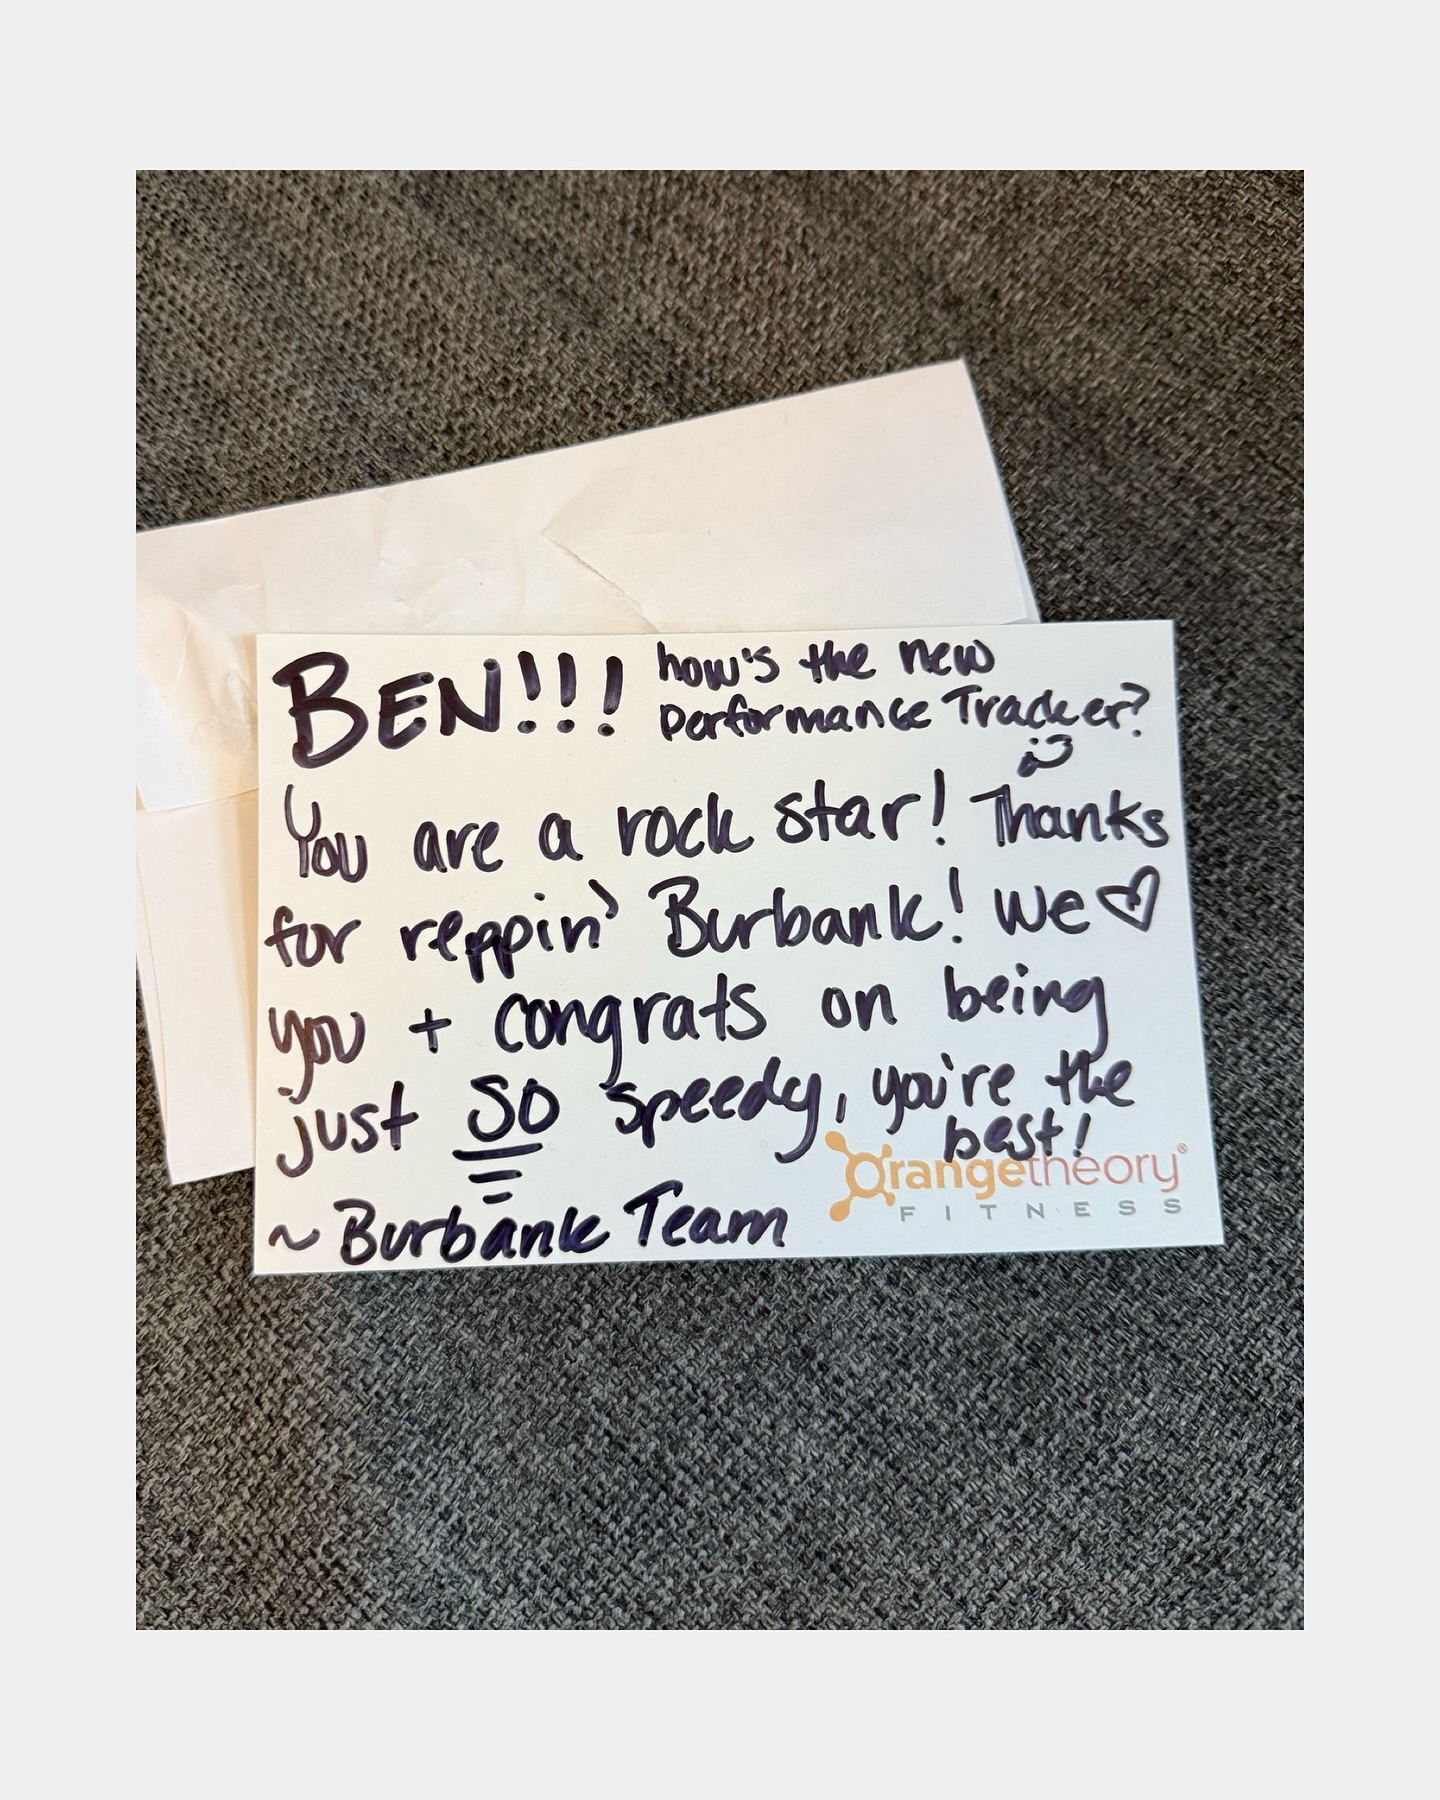 BEN!!! how's the new
performance Tracker?
You are a rock star! Thanks
for reppin' Burbank! We ♡
you + congrats on being
just SO speedy, you're the
best!
Orangetheory®
FITNESS
~ Burbank Team